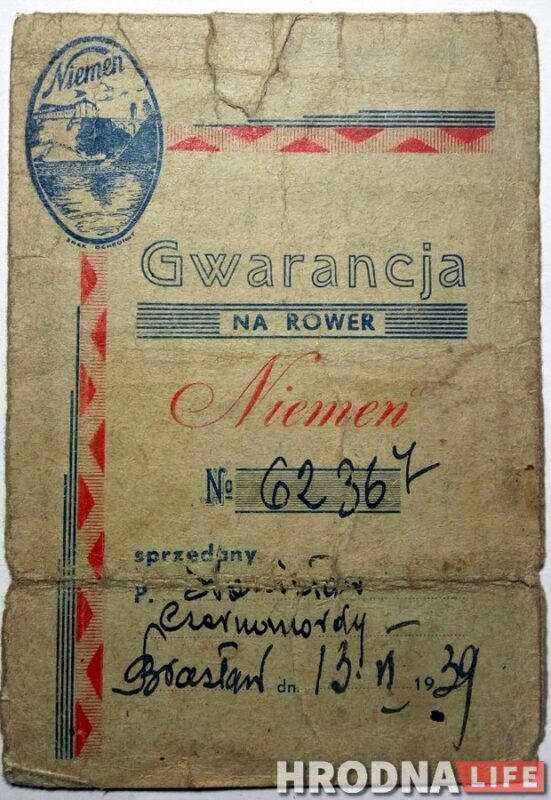 Niemen
ZNAK OCHRONNY
Gwarancja
NA ROWER
„Niemen"
№ 62367
sprzedany
P. Stanisław
Czarnomordy –
Brasław dn. 13 VI 1939
HRODNA LIFE